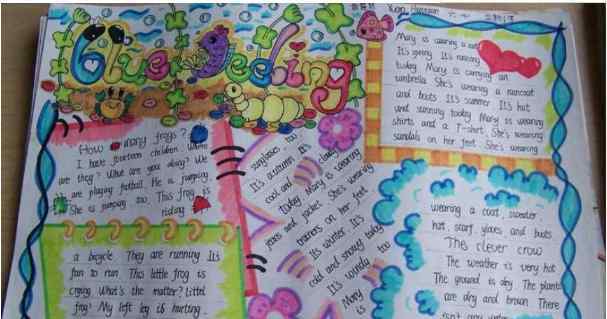 Blue Feeling
How many frogs?
I have fourteen children Where
are they? What are you doing? We
are playing football. He is jumping
She is jumping too. This frog is
riding
a bicycle They are running Its
fun to run This little frog is
crying What's the matter? Littel
frog? My left leg is hurting
sunglasses too
It's autumn It's
cool and cloudy
today Mary is wearing
jeans and jacket She's wearing
trainers on her feet
It's winter It's
cold and snowy today
It's windy too
Mary
is
Mary is wearing a
It's spring It's raining
today Mary is carrying an
umbrella She's wearing a raincoat
and boots It's summer It's hot
and sunny today Mary is wearing
shirts and a T-shirt She's wearing
sandals on her feet She's wearing
wearing a coat, sweater
hat, scarf, gloves and boots
This clever crow
The weather is very hot
The ground is dry The plants
are dry and brown There
isn't any water